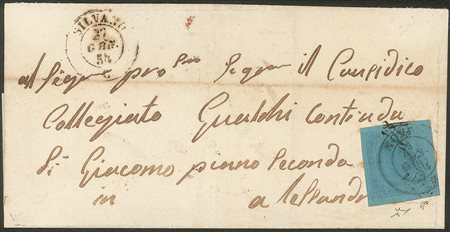 SILVANO
27
GEN
54
al Sigr pro Sigr il Causidico
Collegiato Gualchi Contrada
Di Giacomo piano Secondo
in alessandr